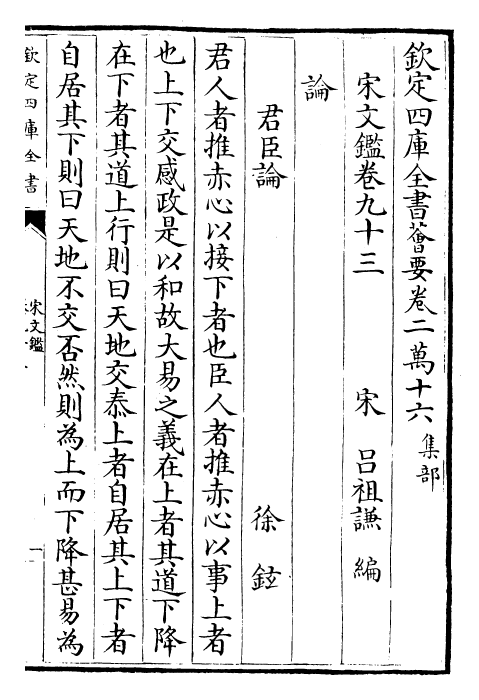 欽定四庫全書薈要卷二萬十六 集部
宋文鑑卷九十三 宋 呂祖謙 編
論
君臣論 徐鉉
君人者推赤心以接下者也臣人者推赤心以事上者
也上下交感政是以和故大易之義在上者其道下降
在下者其道上行則曰天地交泰上者自居其上下者
自居其下則曰天地不交否然則為上而下降甚易為
欽定四庫全書
宋文鑑
一